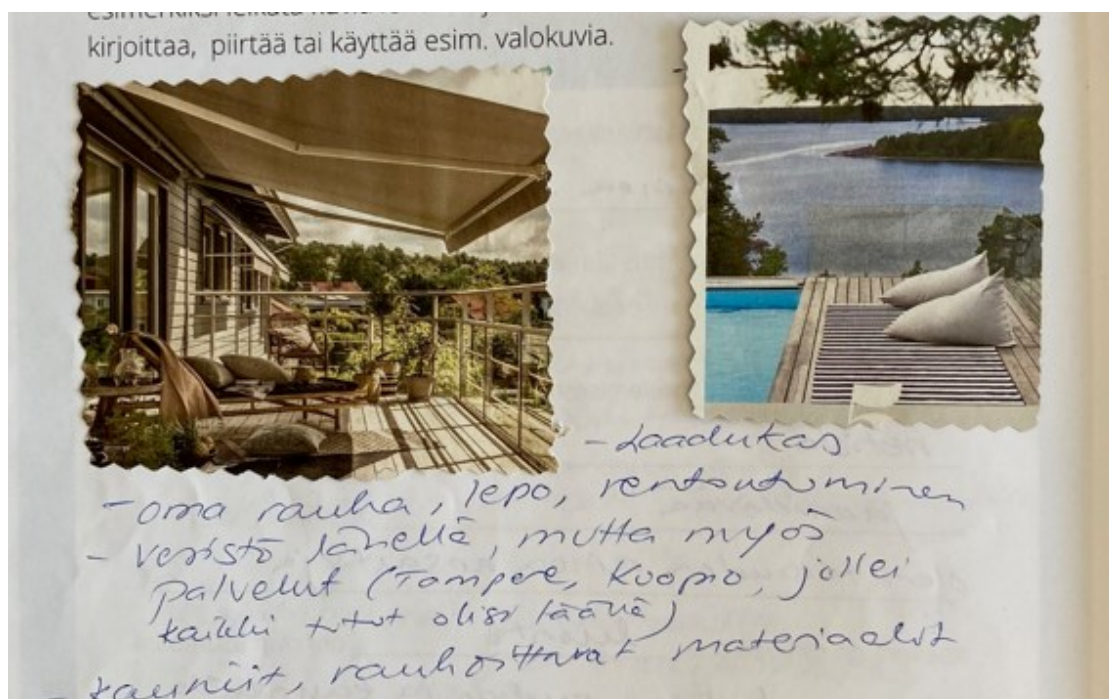 esimerkiksi leikata
kirjoittaa, piirtää tai käyttää esim. valokuvia.
- Laadukas
- oma rauha, lepo, rentoutuminen
- vesistö lähellä, mutta myös
palvelut (Tampere, Kuopio, jollei
kaikki tutut olisi täällä)
- kauniit, rauhoittavat materiaalit